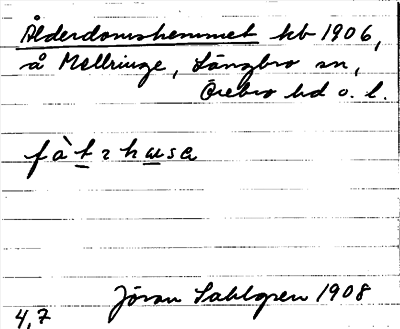 Ålderdomshemmet kb 1906,
å Mellringe, Längbro sn,
Örebro hd o. l.
fàt2husa
Jöran Sahlgren 1908
4,7